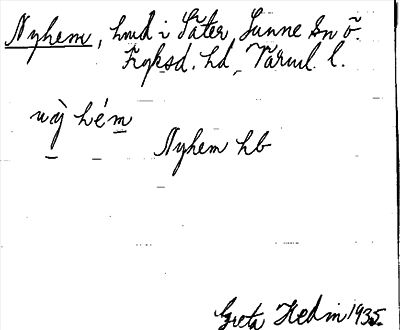 Nyhem, hmd i Säter, Sunne sn ö.
Fryksd. hd, Värml. l.
nỳ hém
Nyhem hb
Greta Hedin 1935.